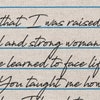 that I was raised
and strong woman
learned to face li
You taught me how